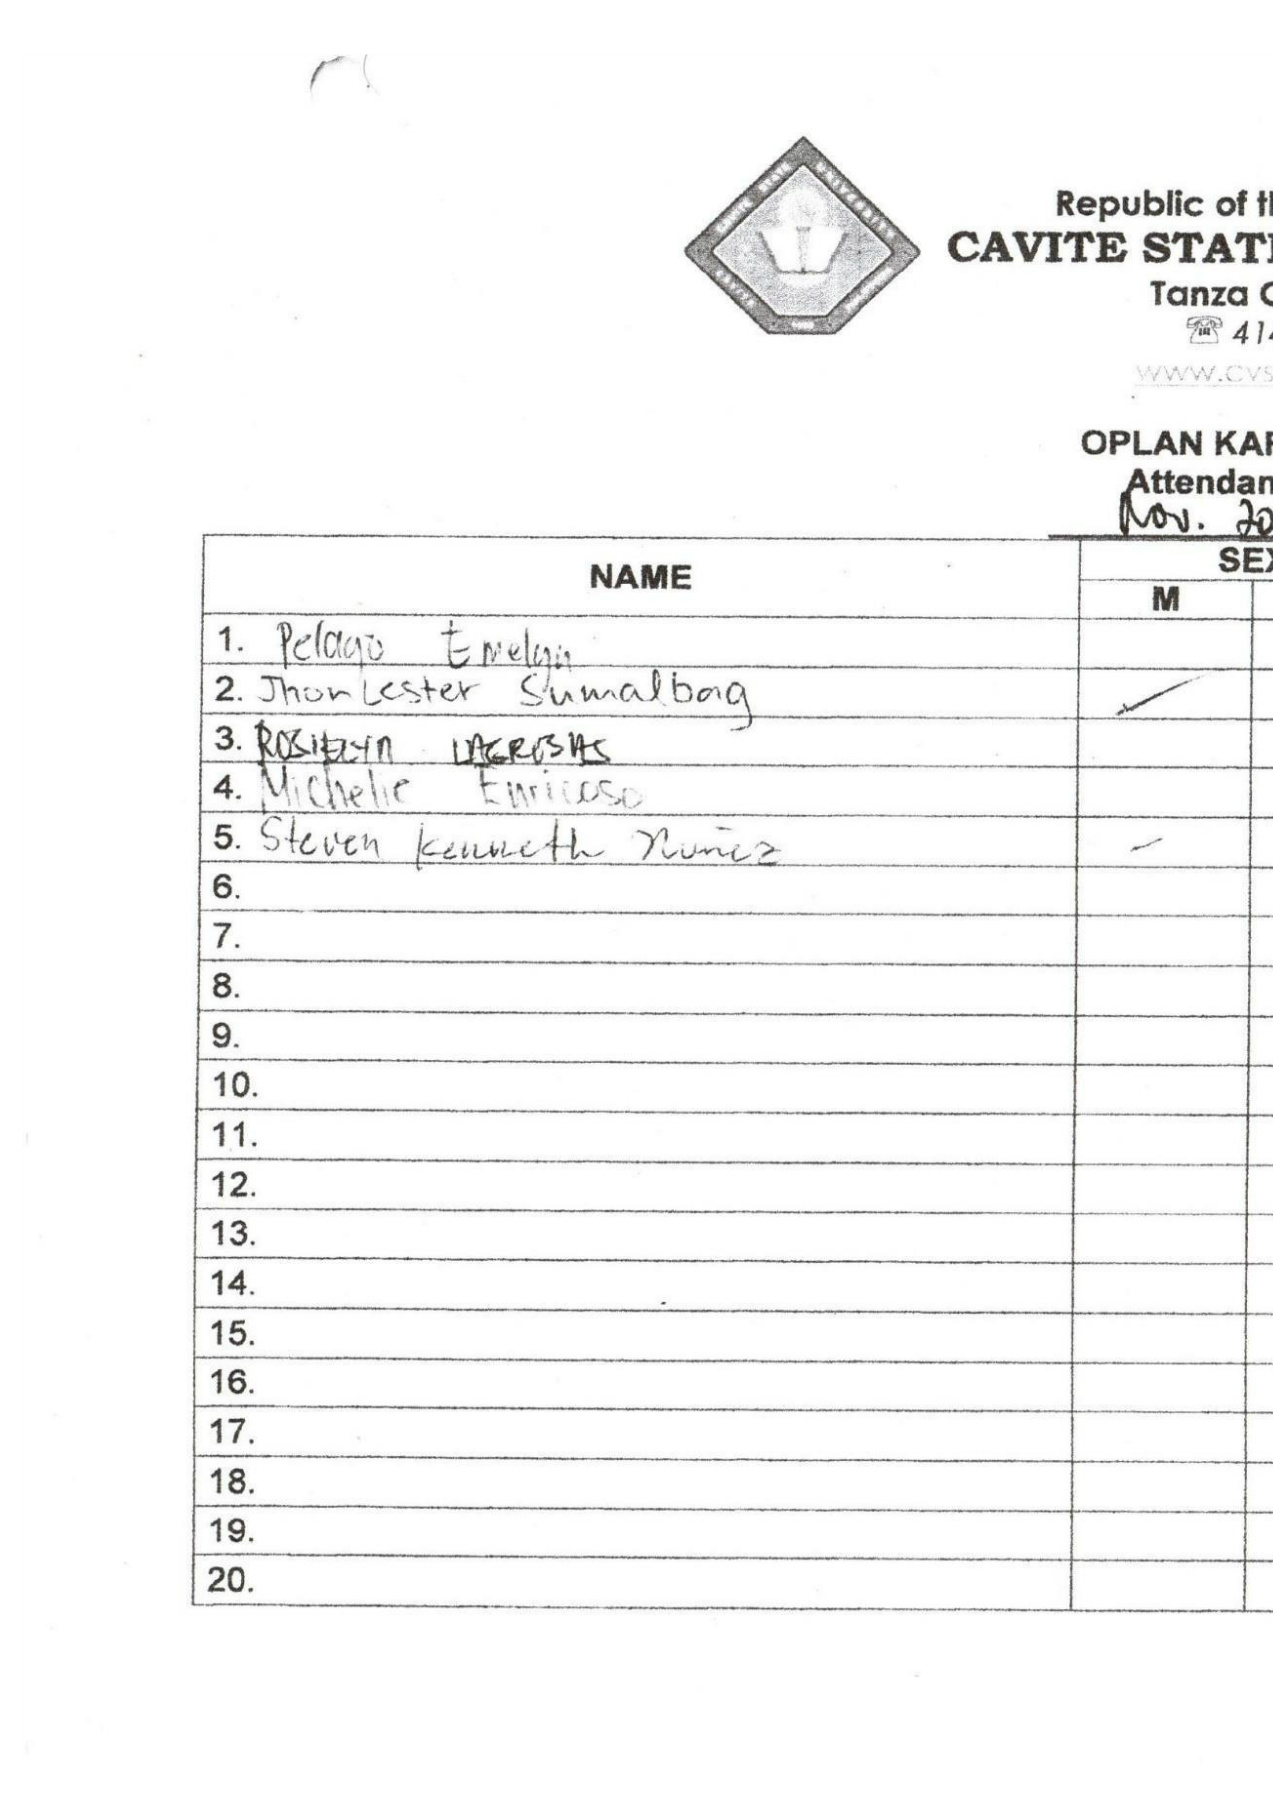 Republic of th
CAVITE STATE
Tanza C
☎ 414
www.cvs
OPLAN KAR
Attendan
Nov. 20
NAME
SEX
M
1. Pelago Emelyn
2. Jhon Lester Sumalbag
3. ROSIELYN LAGRESAS
4. Michelle Enricoso
5. Steven Kenneth Nuñez
6.
7.
8.
9.
10.
11.
12.
13.
14.
15.
16.
17.
18.
19.
20.